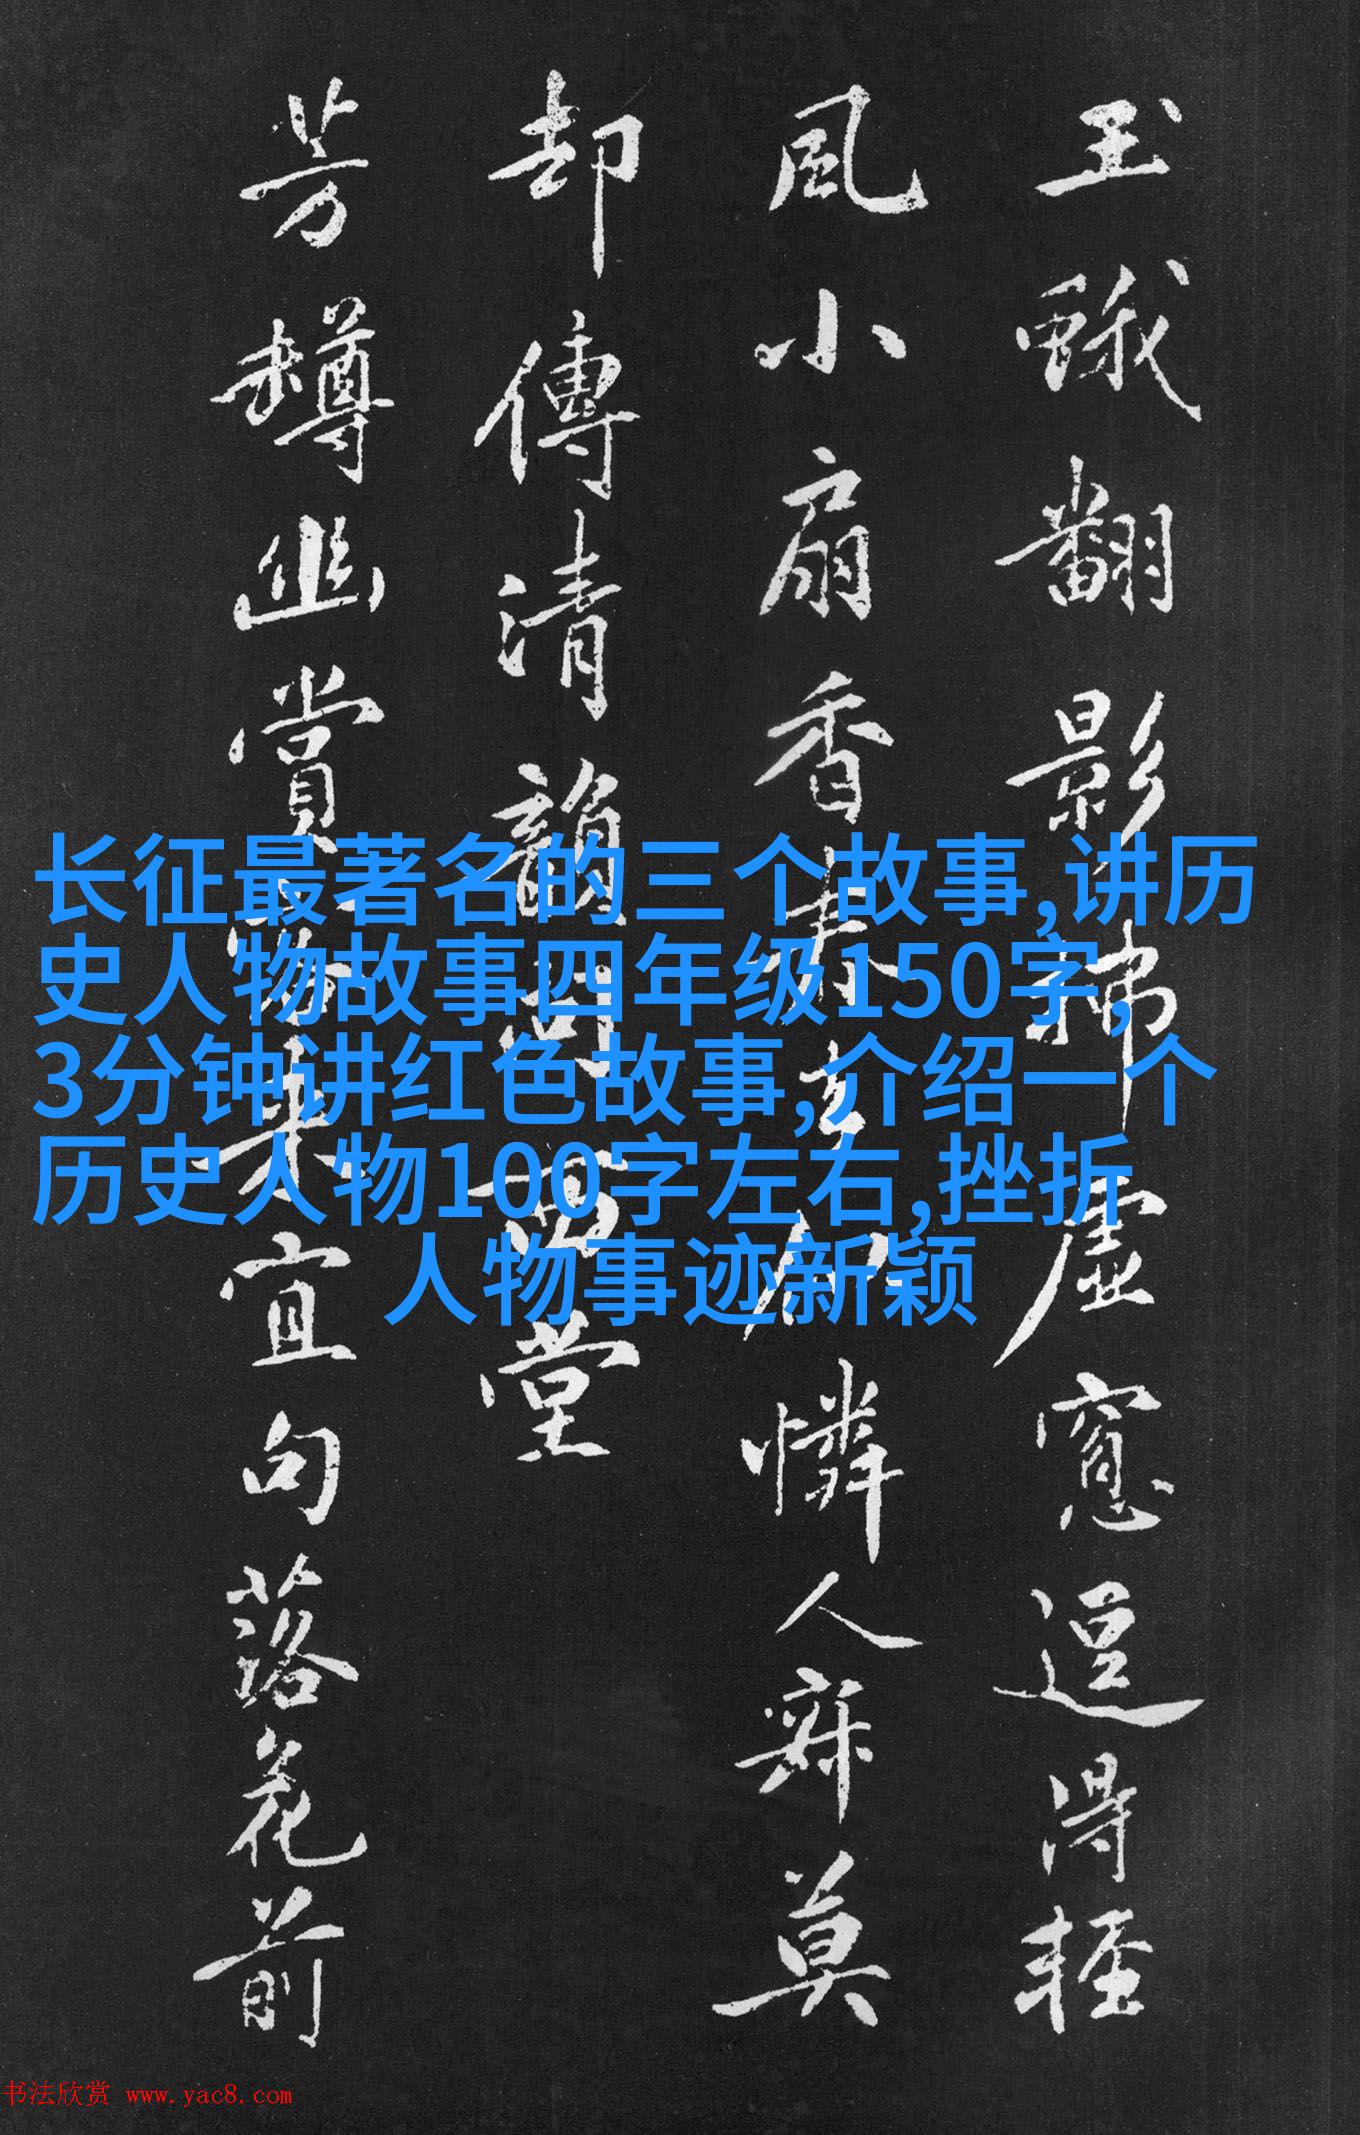 玉蛾翻影拂虛窓逗得輕
風小扇香憐人寐莫
却傳清韻西堂
芳罇幽賞宜句落花前
长征最著名的三个故事,讲历
史人物故事四年级150字,
3分钟讲红色故事,介绍一个
历史人物100字左右,挫折
人物事迹新颖
书法欣赏 www.yac8.com